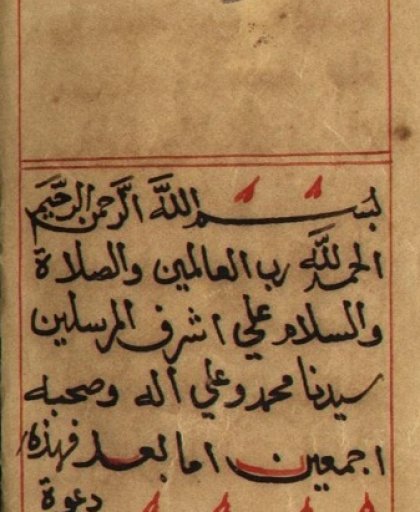 بسم الله الرَّحمن الرحيم
الحمد لله رب العالمين والصلاة
والسلام علي اشرف المرسلين
سيدنا محمد وعلي اله وصحبه
اجمعين اما بعد فهذه
دعوة